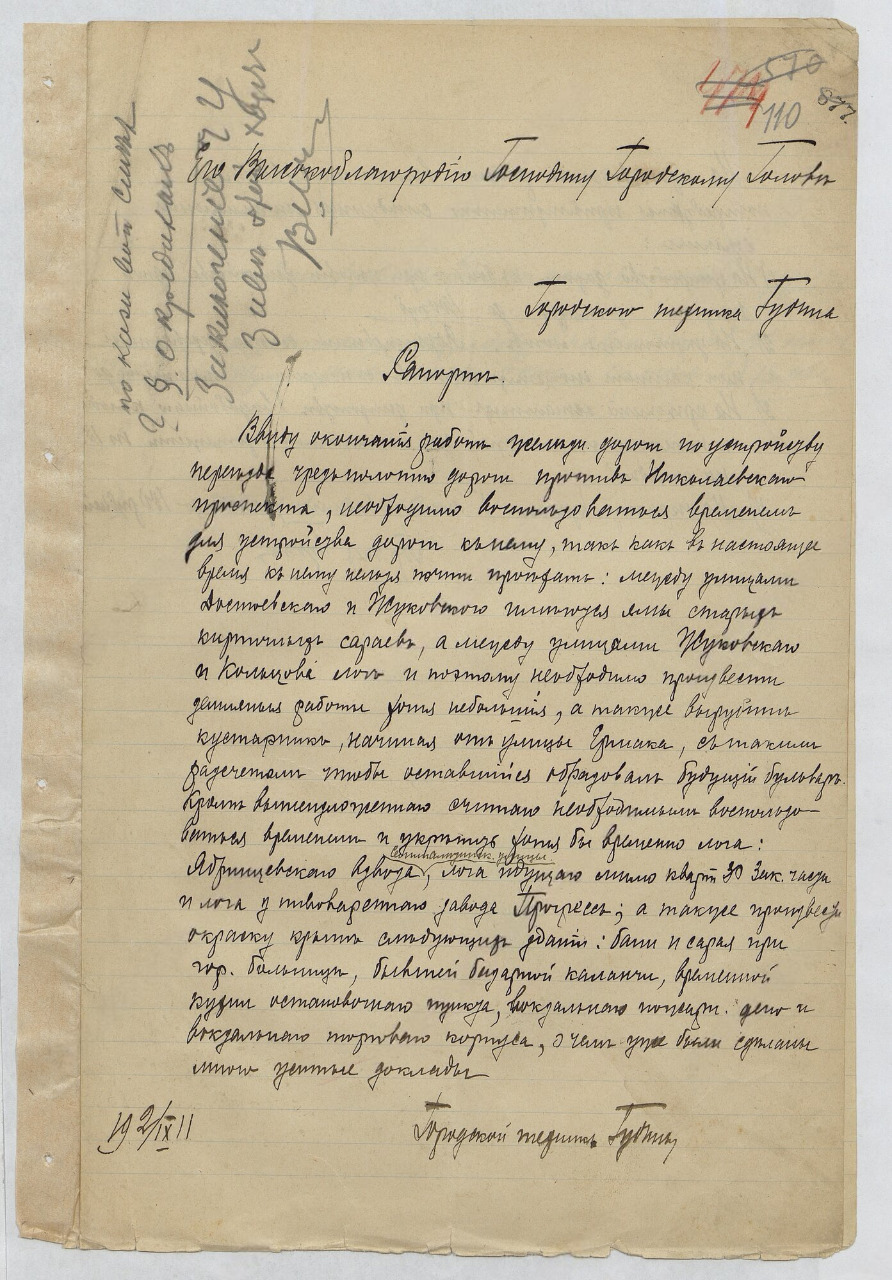 570
110
877.
Его Высокоблагородію Господину Городскому Головѣ
Городского техника Губина
Рапортъ.
Ввиду окончанія работъ желѣзн. дорог. по устройству
переѣзда чрезъ полотно дороги противъ Николаевскаго
проспекта, необходимо воспользоваться временемъ
для устройства дороги къ нему, такъ какъ въ настоящее
время къ нему нельзя почти проѣхать: между улицами
Достоевскаго и Жуковского имѣются ямы старыхъ
кирпичныхъ сараевъ, а между улицами Жуковскаго
и Кольцова логъ и поэтому необходимо произвести
земляныя работы хотя небольшія, а также вырубить
кустарникъ, начиная отъ улицы Ермака, съ такимъ
разсчетомъ чтобы оставшійся образовалъ будущій бульваръ.
Кромѣ вышеизложеннаго считаю необходимымъ воспользо-
ваться временемъ и укрѣпить хотя бы временно лога:
Ядринцевскаго взвоза, лога идущаго мимо кварт. 30 Зак. части
и лога у пивовареннаго завода Прогрессъ; а также произвести
окраску крышъ слѣдующихъ зданій: бани и сарая при
гор. больницѣ, бывшей базарной каланчи, временной
кухни остановочнаго пункта, вокзальнаго пожарн. депо и
вокзальнаго торговаго корпуса, о чемъ уже были сдѣланы
мною устные доклады
19 2/IX 11
Городской техникъ Губинъ